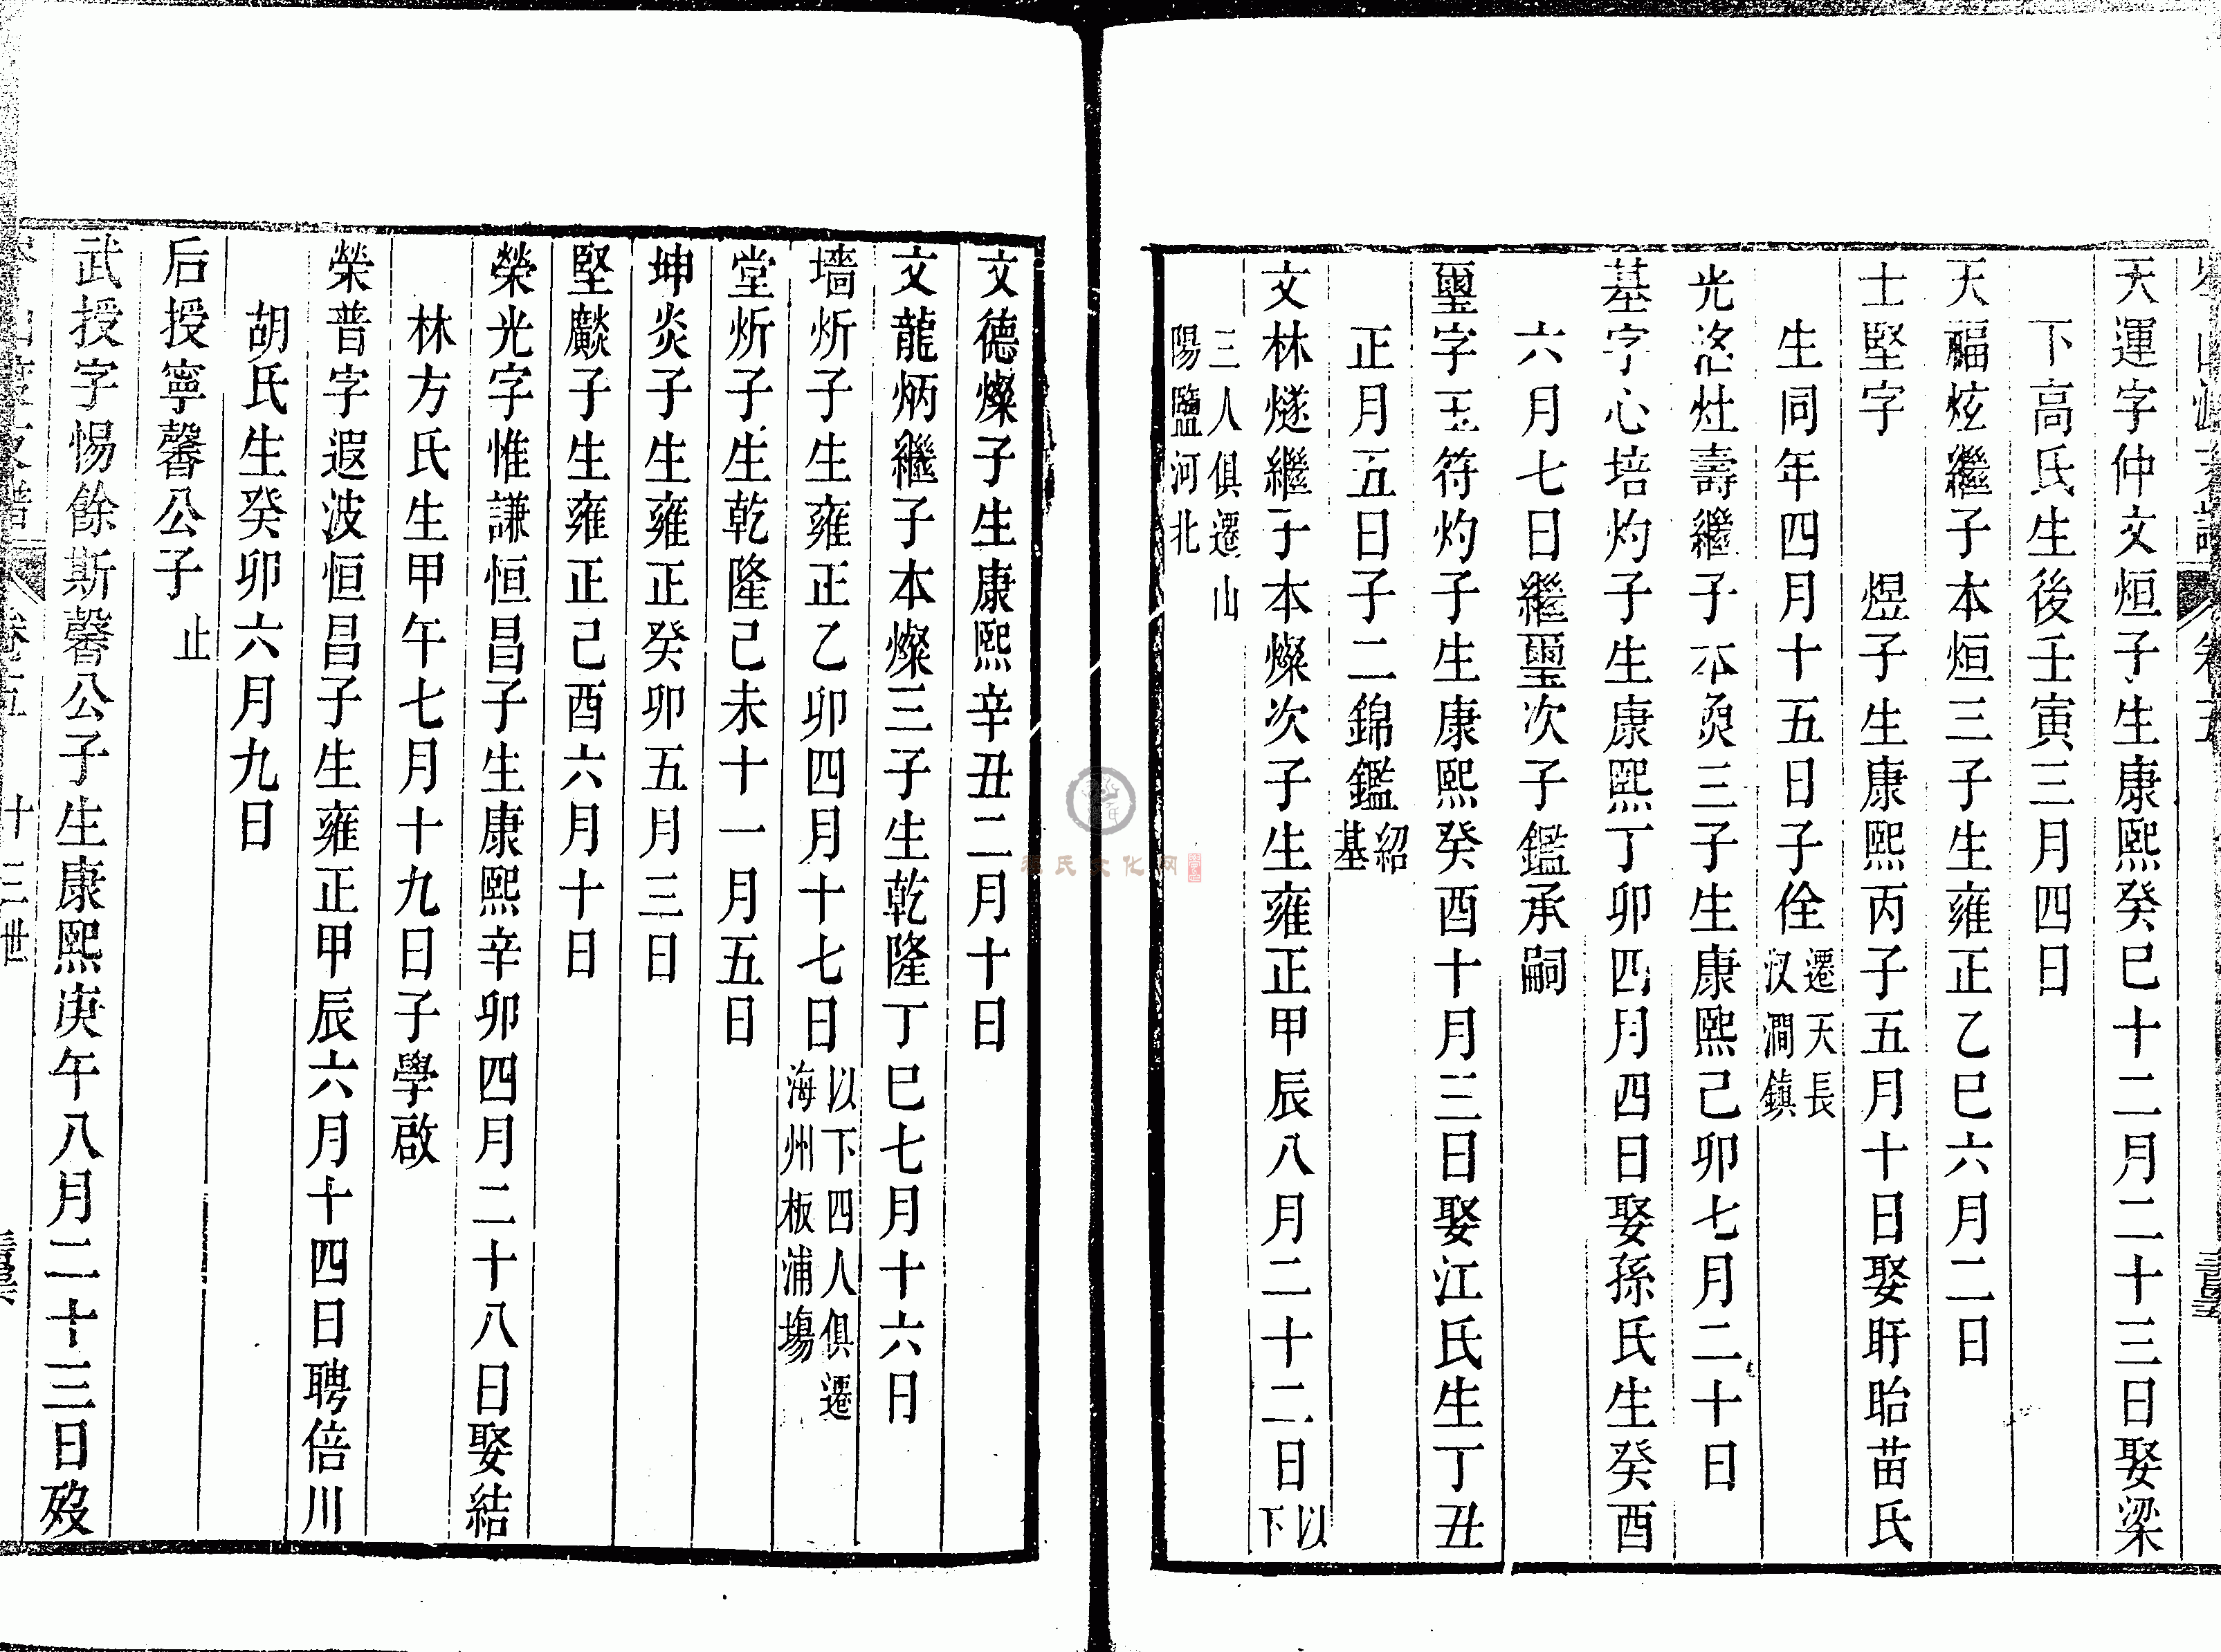 天運字仲文烜子生康熙癸巳十二月二十三日娶梁
下高氏生後壬寅三月四日
天福炫繼子本烜三子生雍正乙巳六月二日
士堅字　煜子生康熙丙子五月十日娶盱眙苗氏
生同年四月十五日子佺遷天長汊澗鎮
光洺灶壽繼子本奐三子生康熙己卯七月二十日
基字心培灼子生康熙丁卯四月四日娶孫氏生癸酉
六月七日繼璽次子鑑承嗣
璽字玉符灼子生康熙癸酉十月三日娶江氏生丁丑
正月五日子二錦鑑紹基
文林燧繼子本燦次子生雍正甲辰八月二十二日以下
三人俱遷山陽鹽河北
文德燦子生康熙辛丑二月十日
文龍炳繼子本燦三子生乾隆丁巳七月十六日
墻炘子生雍正乙卯四月十七日以下四人俱遷海州板浦場
堂炘子生乾隆己未十一月五日
坤炎子生雍正癸卯五月三日
堅燅子生雍正己酉六月十日
榮光字惟謙恒昌子生康熙辛卯四月二十八日娶結
林方氏生甲午七月十九日子學啟
榮普字遐波恒昌子生雍正甲辰六月十四日聘倍川
胡氏生癸卯六月九日
后授寧馨公子止
武授字惕餘斯馨公子生康熙庚午八月二十三日歿
卷五　十三世